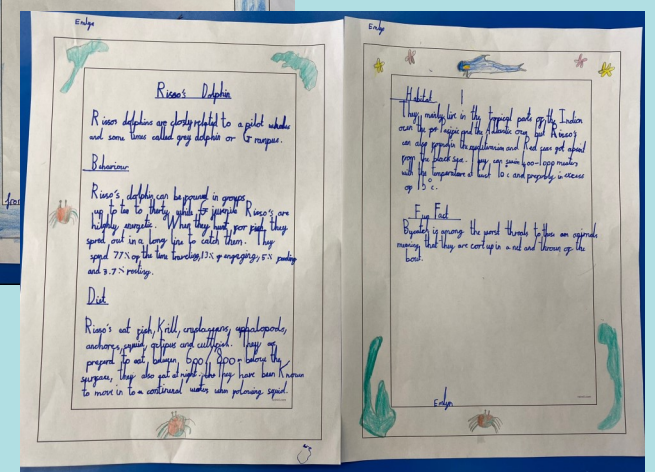 Emlyn
Risso's Dolphin
Rissos dolphins are closly related to a pilot whale
and some times called grey dolphin or Grampus.
Behaviour
Risso's dolphin can be found in groups
up to ten to thirty while juvenile Risso's are
highly energetic. When they hunt for fish, they
spred out in a long line to catch them. They
spend 77% of the time traveling, 13% engaging, 5% feeding
and 3.7% resting.
Diet
Risso's eat fish, Krill, crustaceans, cephalopods,
anchovies, squid, octipus and cuttlfish. They are
prepard to eat, between, 600/800m below the
surface, they also eat at night. They have been Known
to move in to a continenal waters when following squid.
Emlyn
Habitat
They mainly live in the tropical parts of the Indian
ocen the pacific and the Atlantic ocen but Risso's
can also found in the meditiranian and Red sea not absent
from the black sea. They can swim 400-1000 meters
with the temperature at least 10c and prefrebly in excess
of 15°c.
Fun Fact
Bycatch is among the worst threats to these animals
meaning that they are cort up in a net and thrown of the
boat.
Emlyn